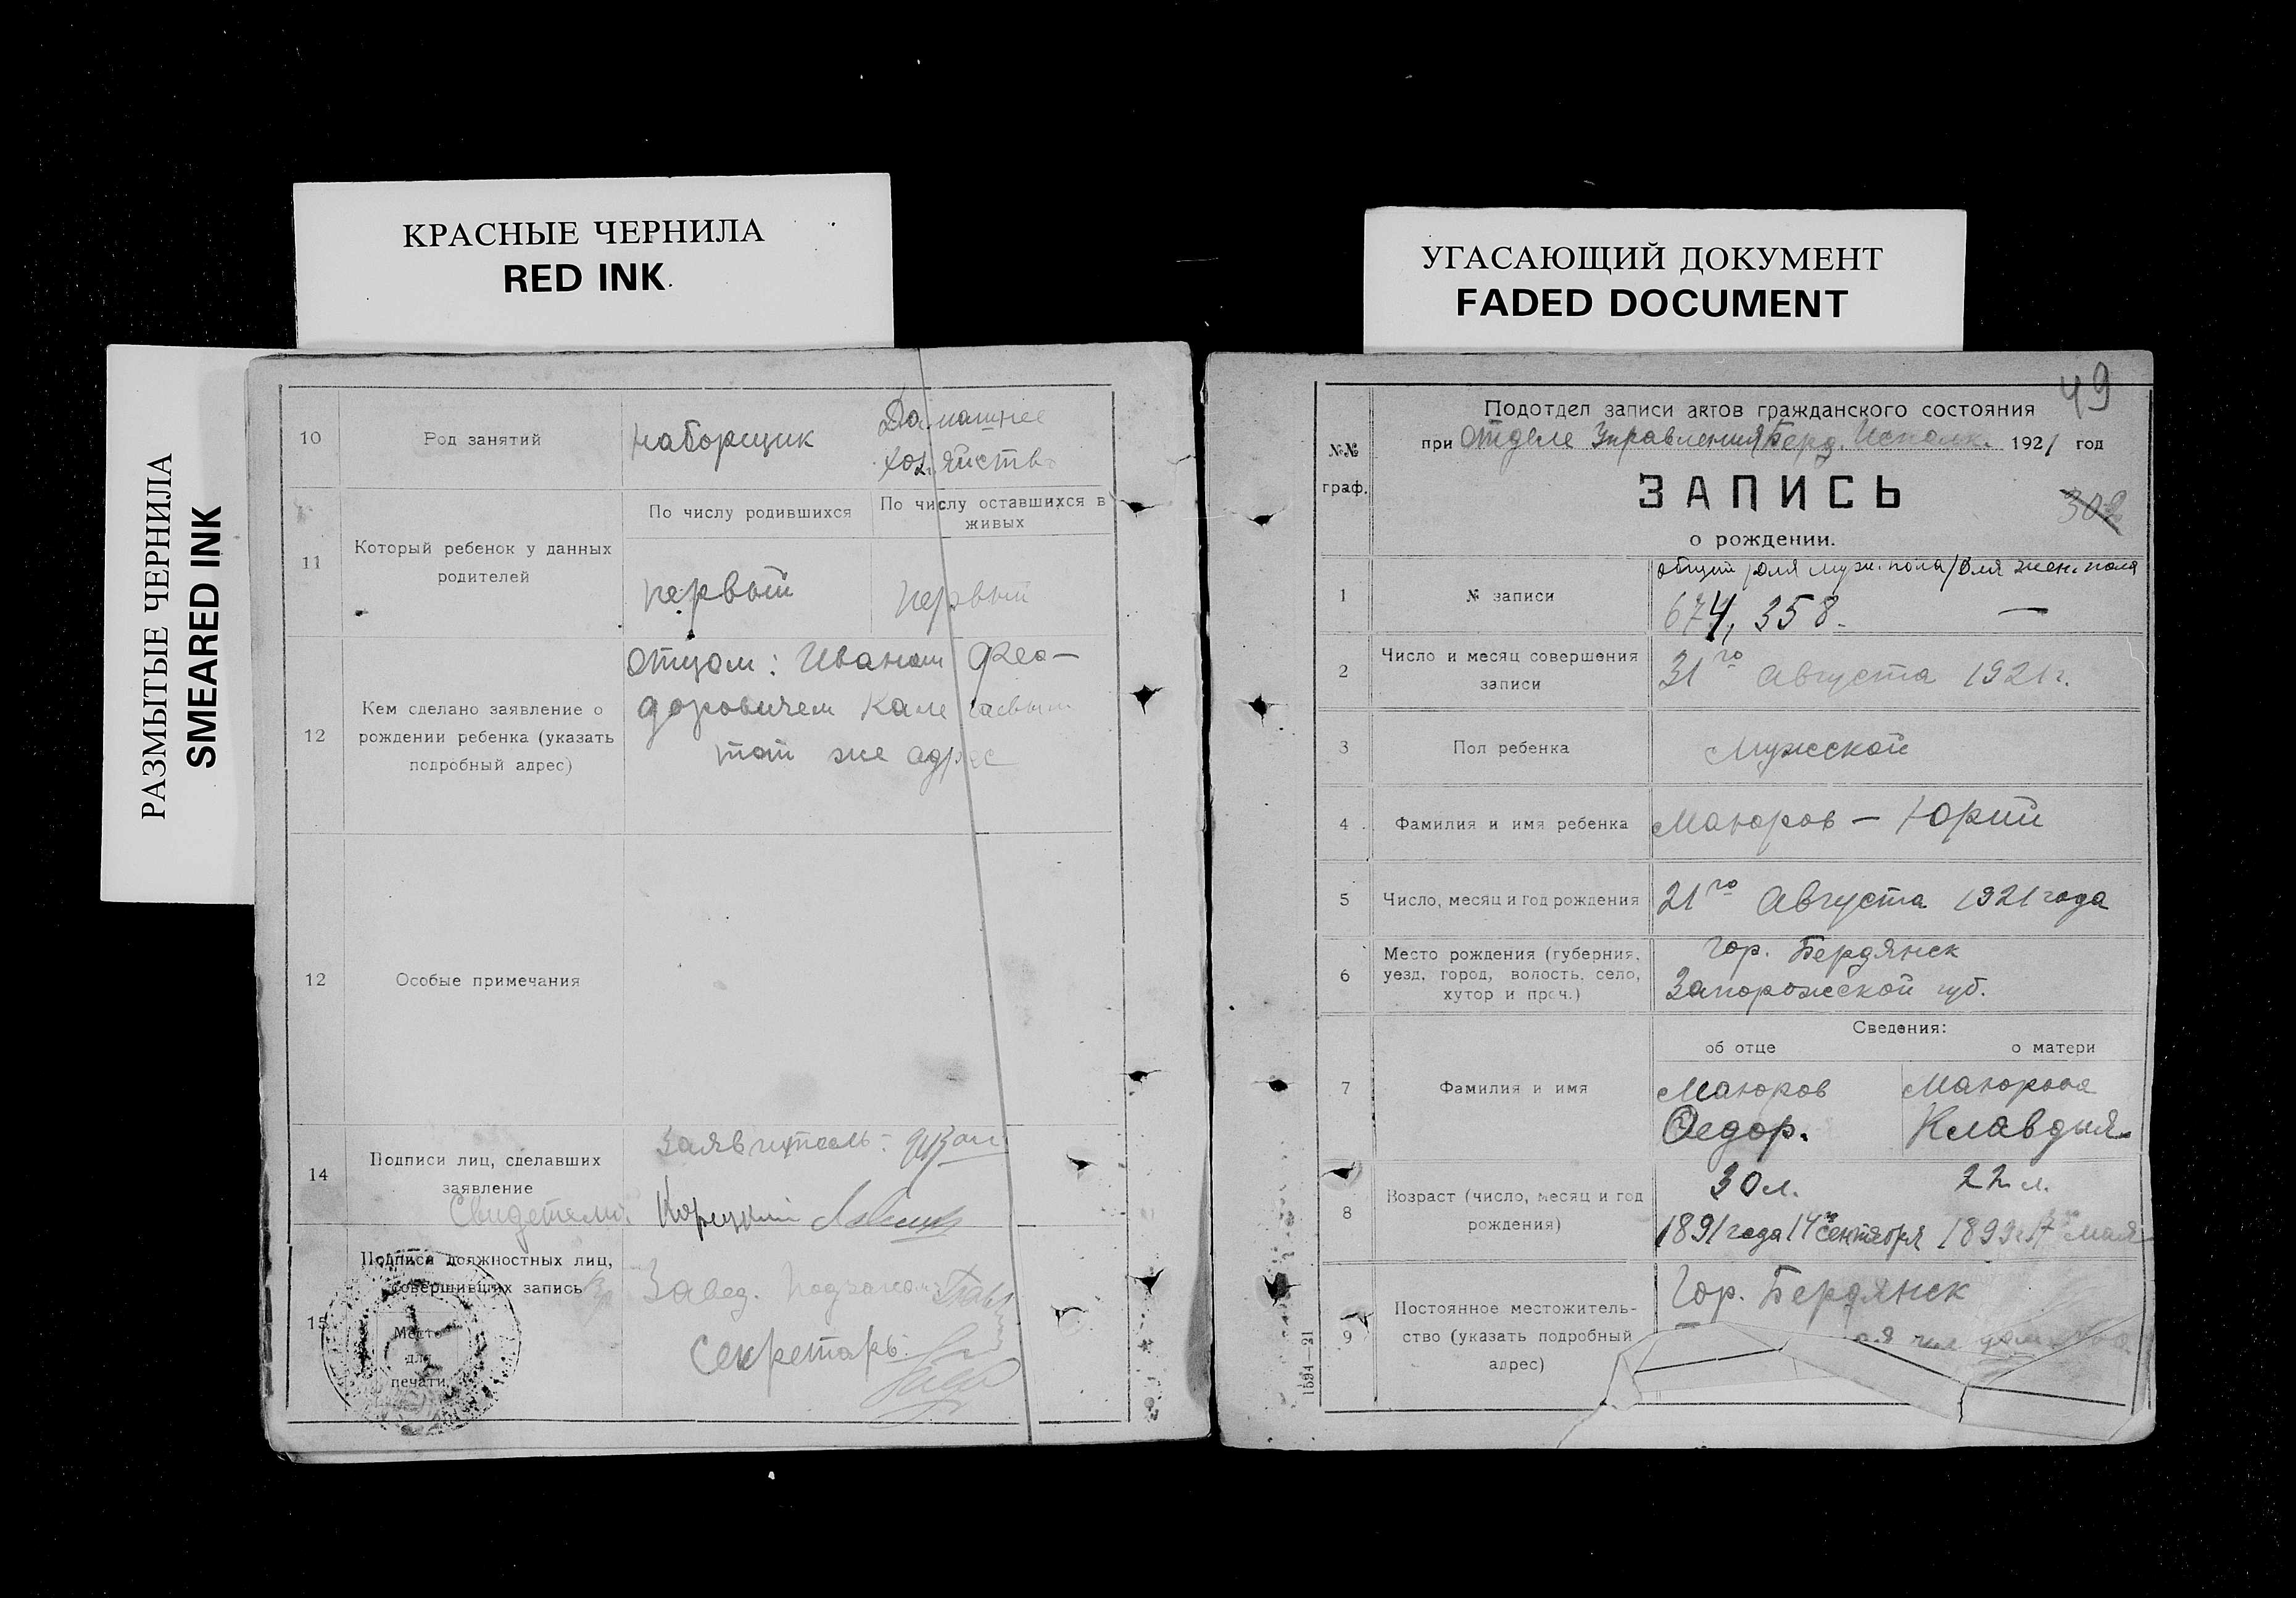 КРАСНЫЕ ЧЕРНИЛА
RED INK
РАЗМЫТЫЕ ЧЕРНИЛА
SMEARED INK
10
Род занятий
наборщик
Домашнее
хозяйство
11
Который ребенок у данных
родителей
По числу родившихся
По числу оставшихся в
живых
первый
первый
12
Кем сделано заявление о
рождении ребенка (указать
подробный адрес)
отцом: Иваном Фео-
доровичем
тот же адрес
12
Особые примечания
14
Подписи лиц, сделавших
заявление
Заявитель:
Свидетели:
Корецкий
15
Подписи должностных лиц,
совершивших запись
Место
для
печати
Завед.
Секретарь:
УГАСАЮЩИЙ ДОКУМЕНТ
FADED DOCUMENT
49
№№
граф.
Подотдел записи актов гражданского состояния
при Отделе Управления Берд. Исполк. 1921 год
ЗАПИСЬ
302
о рождении.
1
№ записи
общий / для муж. пола / для жен. пола
674, 358. —
2
Число и месяц совершения
записи
31го Августа 1921 г.
3
Пол ребенка
Мужской
4
Фамилия и имя ребенка
Маюров — Юрий
5
Число, месяц и год рождения
21го Августа 1921 года
6
Место рождения (губерния,
уезд, город, волость, село,
хутор и проч.)
гор. Бердянск
Запорожской губ.
Сведения:
об отце
о матери
7
Фамилия и имя
Маюров
Федор.
Маюрова
Клавдия.
8
Возраст (число, месяц и год
рождения)
30 л.
1891 года 14го сентября
22 л.
1899 г. 17го мая
9
Постоянное местожитель-
ство (указать подробный
адрес)
Гор. Бердянск
1594—21